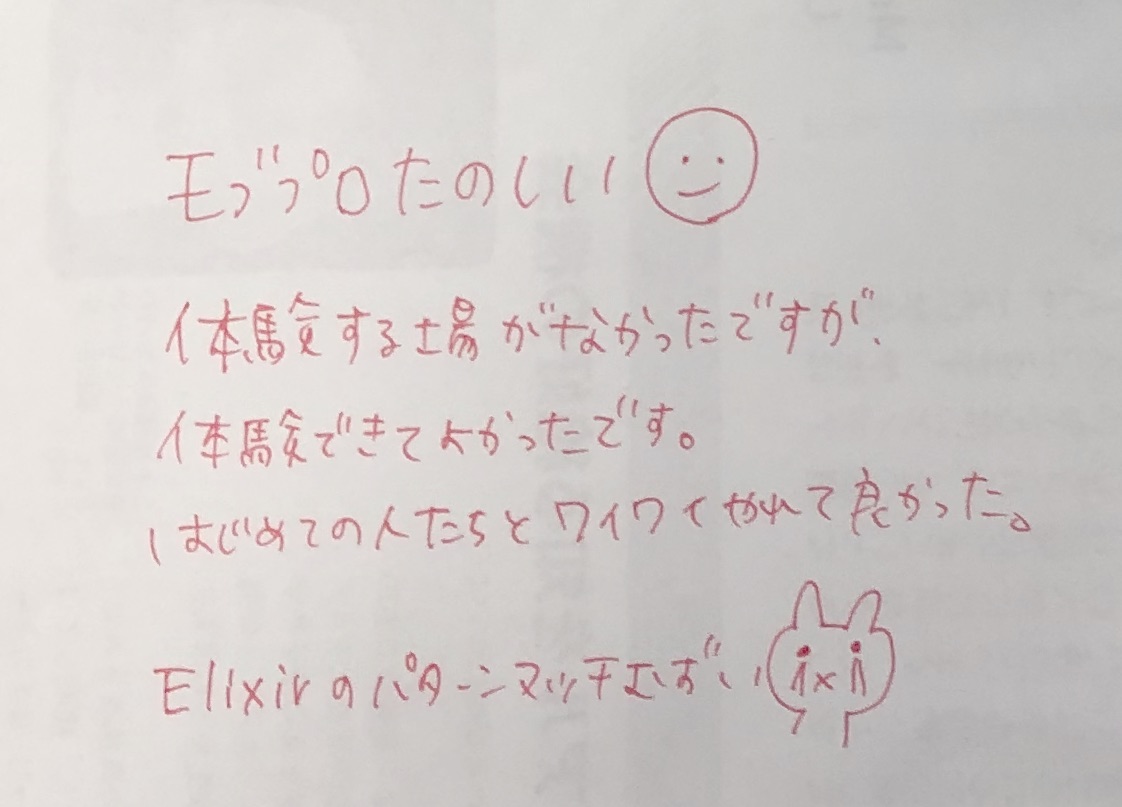 モブプロたのしい
体験する場がなかったですが、
体験できてよかったです。
はじめての人たちとワイワイやれて良かった。
Elixirのパターンマッチエぐい